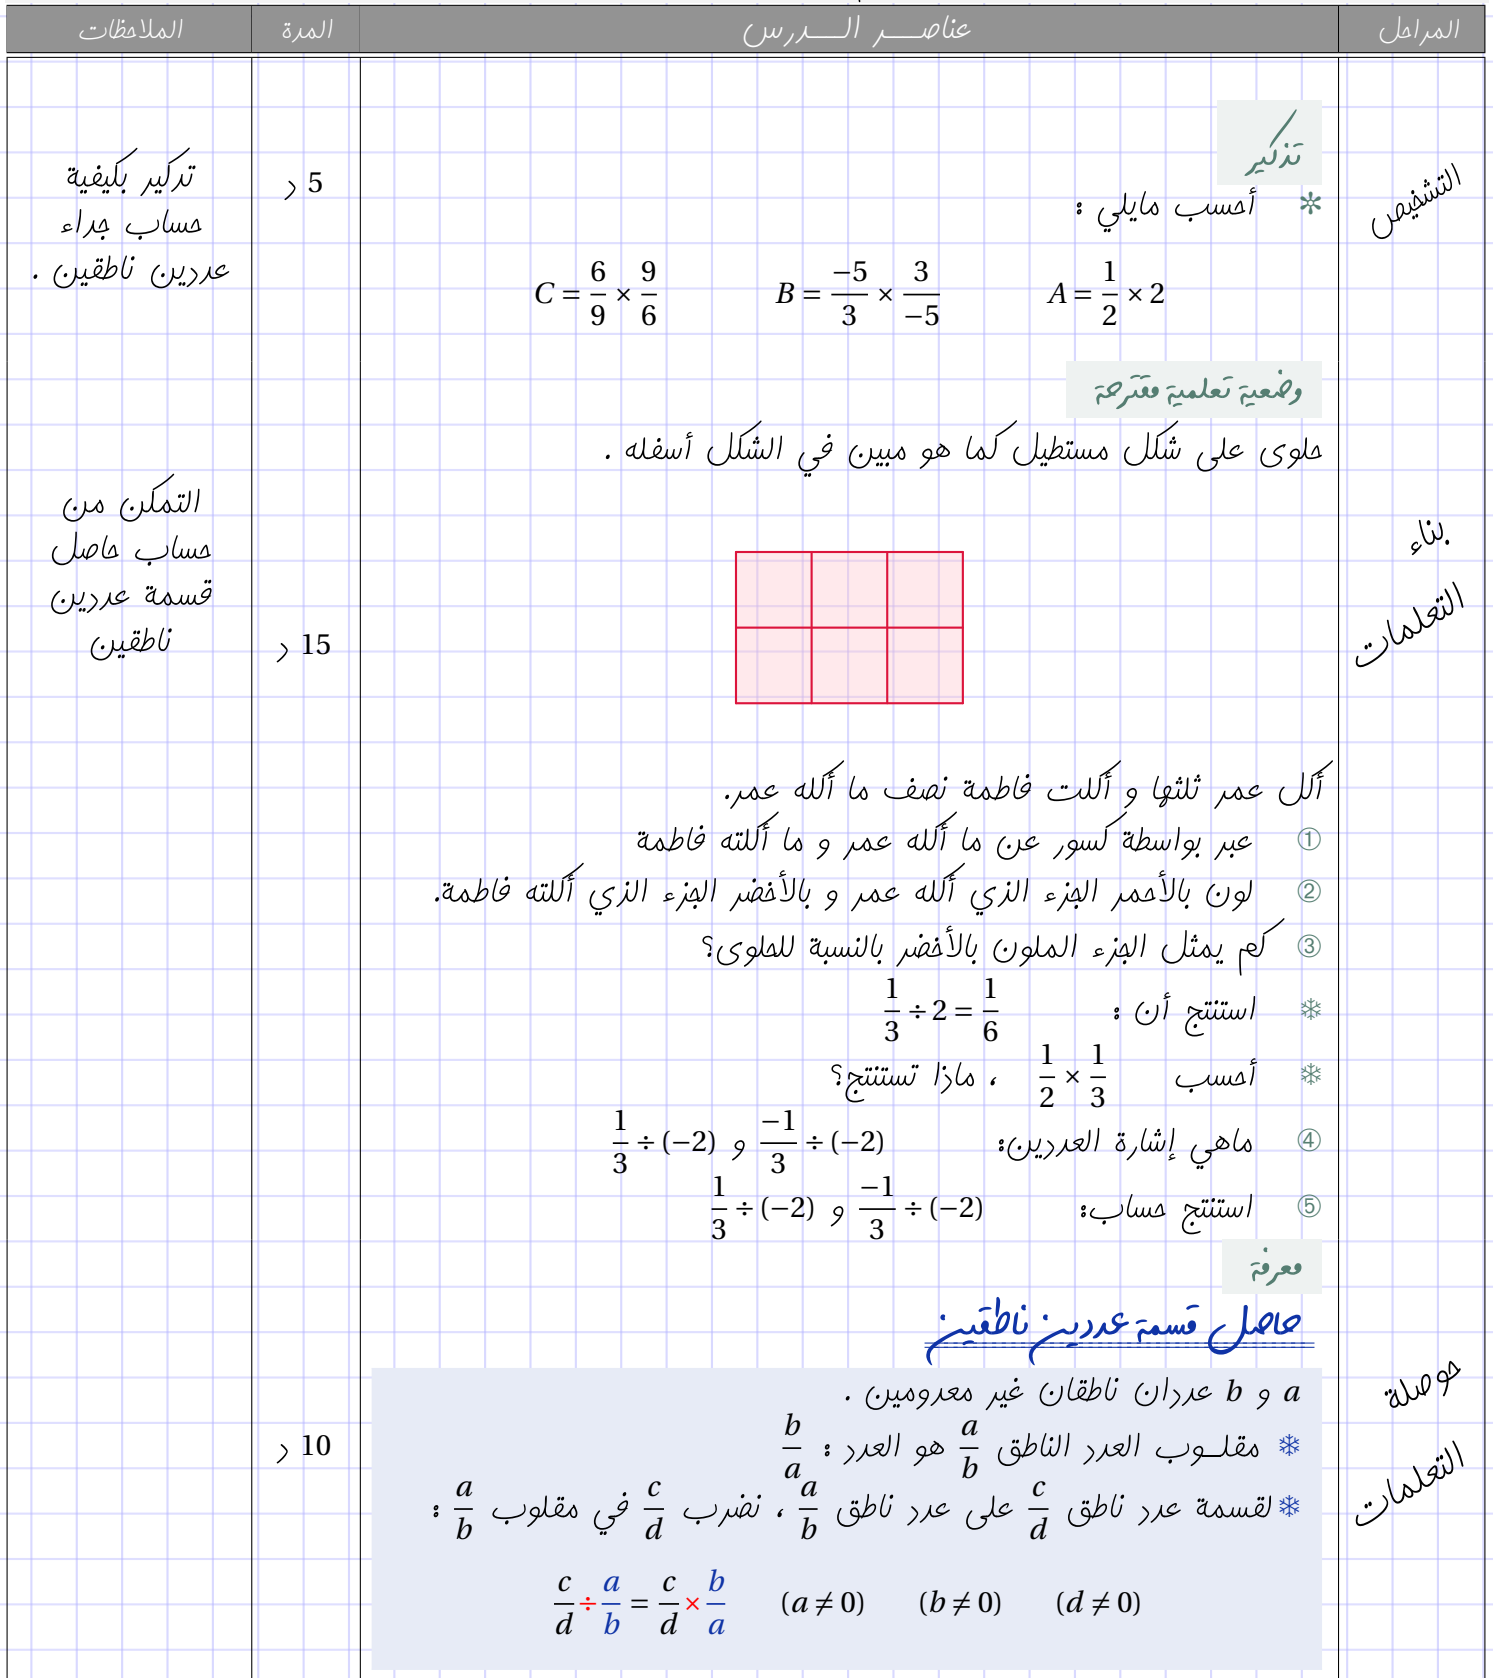 المراحل
عناصر الدرس
المدة
الملاحظات
التشخيص
تذكير
✻ أحسب مايلي :
A = 1/2 × 2
B = −5/3 × 3/−5
C = 6/9 × 9/6
5 د
تذكير بكيفية
حساب جداء
عددين ناطقين .
بناء
التعلمات
وضعية تعلمية مقترحة
حلوى على شكل مستطيل كما هو مبين في الشكل أسفله .
أكل عمر ثلثها و أكلت فاطمة نصف ما أكله عمر.
① عبر بواسطة كسور عن ما أكله عمر و ما أكلته فاطمة
② لون بالأحمر الجزء الذي أكله عمر و بالأخضر الجزء الذي أكلته فاطمة.
③ كم يمثل الجزء الملون بالأخضر بالنسبة للحلوى؟
❄ استنتج أن : 1/3 ÷ 2 = 1/6
❄ أحسب 1/2 × 1/3 ، ماذا تستنتج؟
④ ماهي إشارة العددين: −1/3 ÷ (−2) و 1/3 ÷ (−2)
⑤ استنتج حساب: −1/3 ÷ (−2) و 1/3 ÷ (−2)
15 د
التمكن من
حساب حاصل
قسمة عددين
ناطقين
حوصلة
التعلمات
معرفة
حاصل قسمة عددين ناطقين
a و b عددان ناطقان غير معدومين .
❄ مقلوب العدد الناطق a/b هو العدد : b/a
❄ لقسمة عدد ناطق c/d على عدد ناطق a/b ، نضرب c/d في مقلوب a/b :
c/d ÷ a/b = c/d × b/a (a ≠ 0) (b ≠ 0) (d ≠ 0)
10 د